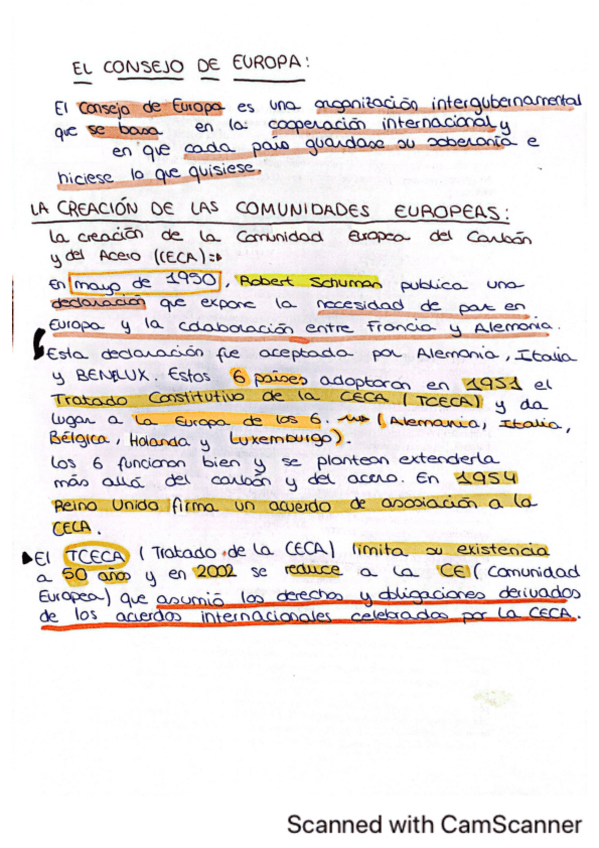 EL CONSEJO DE EUROPA:
El Consejo de Europa es una organización intergubernamental
que se basa en la: cooperación internacional y
en que cada país guardase su soberanía e
hiciese lo que quisiese.
LA CREACIÓN DE LAS COMUNIDADES EUROPEAS:
La creación de la Comunidad Europea del Carbón
y del Acero (CECA):
En mayo de 1950, Robert Schuman publica una
declaración que expone la necesidad de paz en
Europa y la colaboración entre Francia y Alemania.
Esta declaración fue aceptada por Alemania, Italia
y BENELUX. Estos 6 países adoptaron en 1951 el
Tratado Constitutivo de la CECA (TCECA) y da
lugar a la Europa de los 6. (Alemania, Italia,
Bélgica, Holanda y Luxemburgo).
Los 6 funcionan bien y se plantean extenderla
más allá del carbón y del acero. En 1954
Reino Unido firma un acuerdo de asociación a la
CECA.
El TCECA (Tratado de la CECA) limita su existencia
a 50 años y en 2002 se reduce a la CE (Comunidad
Europea) que asumió los derechos y obligaciones derivados
de los acuerdos internacionales celebrados por la CECA.
Scanned with CamScanner